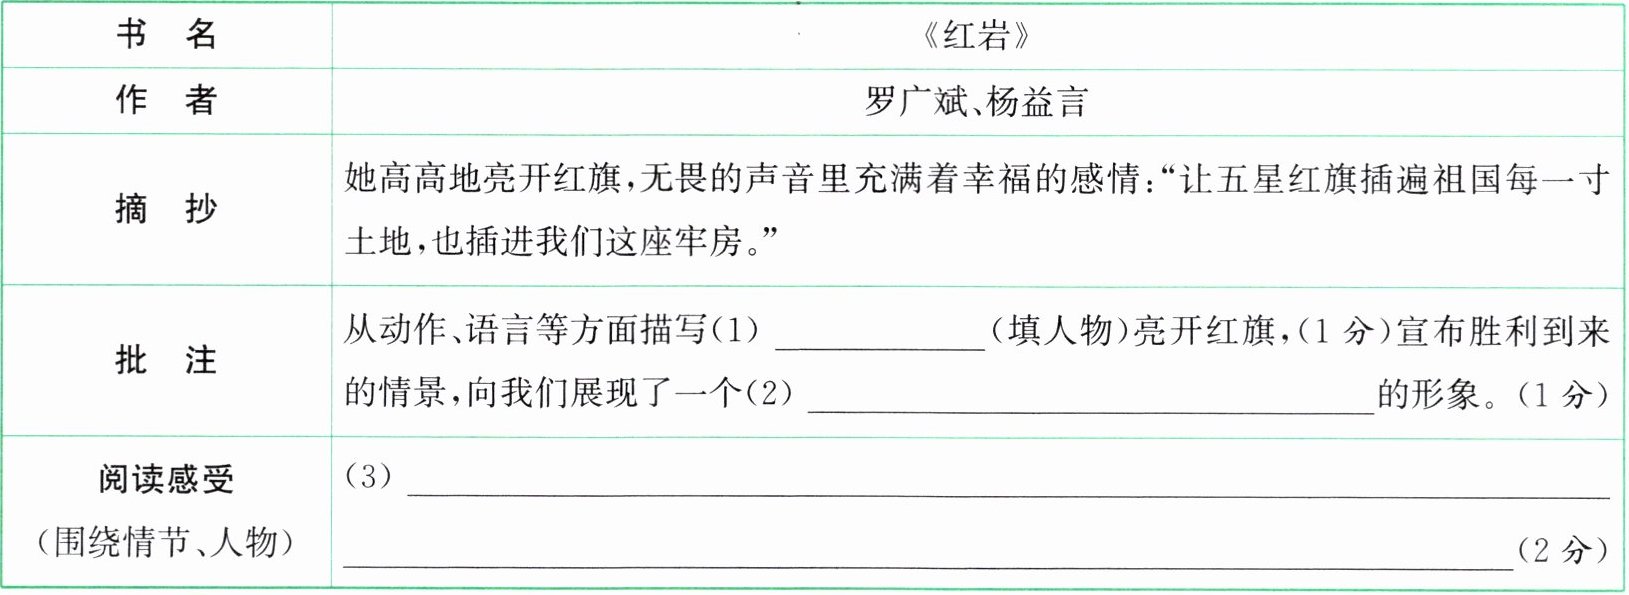 书 名 《红岩》
作 者 罗广斌、杨益言
摘 抄 她高高地亮开红旗,无畏的声音里充满着幸福的感情:“让五星红旗插遍祖国每一寸
土地,也插进我们这座牢房。”
批 注 从动作、语言等方面描写(1) ____________(填人物)亮开红旗,(1 分)宣布胜利到来
的情景,向我们展现了一个(2) ________________________________的形象。(1 分)
阅读感受 (3) ____________________________________________________________
(围绕情节、人物) ____________________________________________________________(2 分)